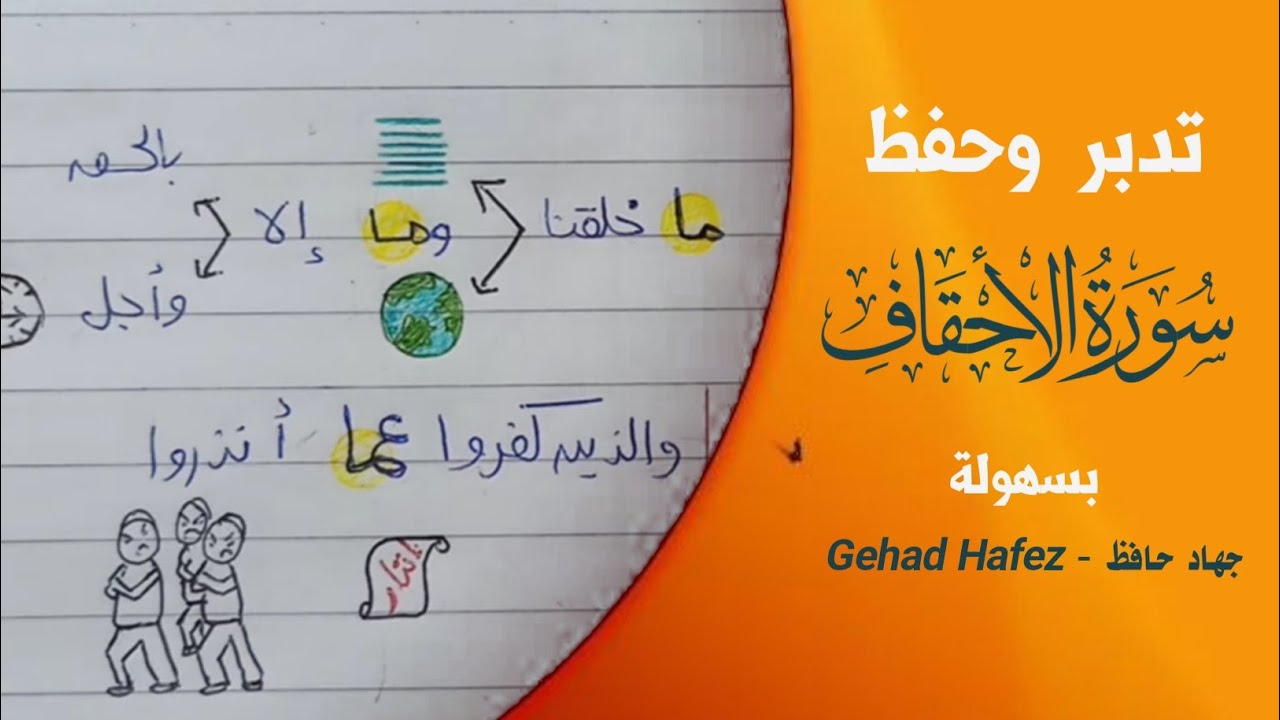 تدبر وحفظ
سُورَةُ الأَحْقَافِ
بسهولة
جهاد حافظ - Gehad Hafez
بالحق
ما خلقنا وما إلا
وأجل
والذين كفروا عما أنذروا